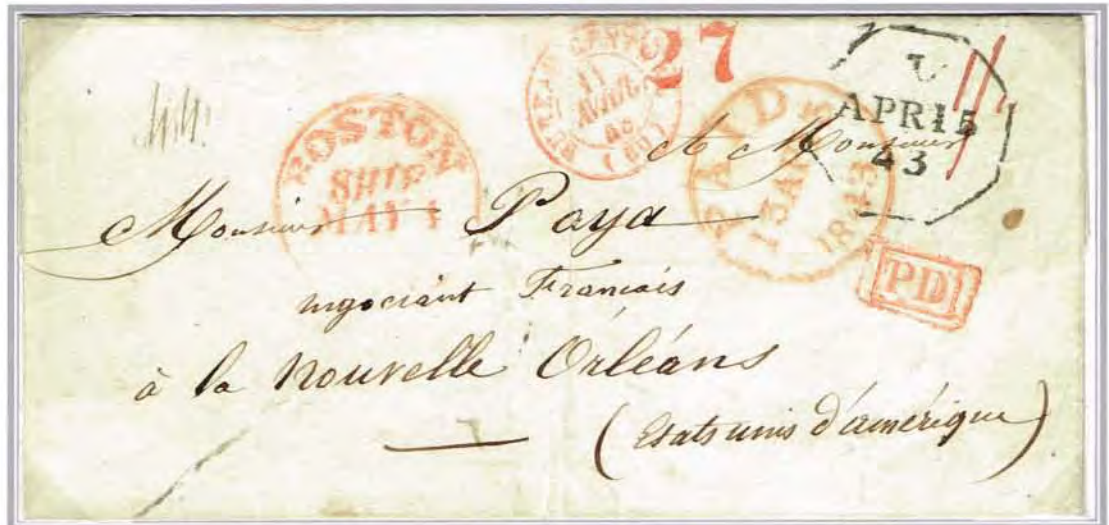 27
BOSTON
SHIP
MAY 1
11
AVRIL
43
PAID
13AP13
1843
U
APR 15
43
A Monsieur
Monsieur Paya
PD
négociant Francais
à la Nouvelle Orléans
(Etats unis d'amérique)